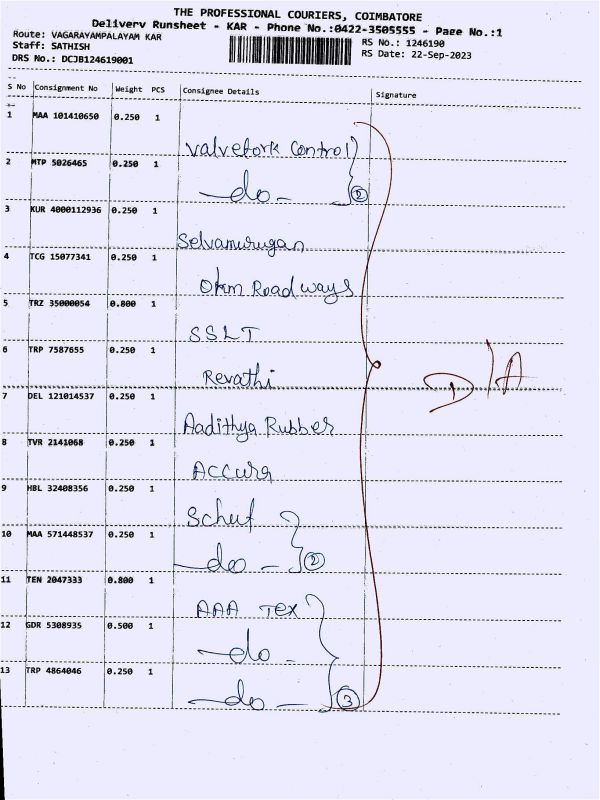 THE PROFESSIONAL COURIERS, COIMBATORE
Delivery Runsheet - KAR - Phone No.:0422-3505555 - Page No.:1
Route: VAGARAYAMPALAYAM KAR
Staff: SATHISH
DRS No.: DCJB124619001
RS No.: 1246190
RS Date: 22-Sep-2023
S No Consignment No Weight PCS Consignee Details Signature
1 MAA 101410650 0.250 1 Valvetork Control
2 MTP 5026465 0.250 1 -do- 2
3 KUR 4000112936 0.250 1 Selvamurugan
4 TCG 15077341 0.250 1 Okm Road ways
5 TRZ 35000054 0.800 1 SSLT
6 TRP 7587655 0.250 1 Revathi
7 DEL 121014537 0.250 1 Aadithya Rubber
8 TVR 2141068 0.250 1 Accura
9 HBL 32408356 0.250 1 Schuf
10 MAA 571448537 0.250 1 -do- 2
11 TEN 2047333 0.800 1 AAA Tex
12 GDR 5308935 0.500 1 -do-
13 TRP 4864046 0.250 1 -do- 3
D/A